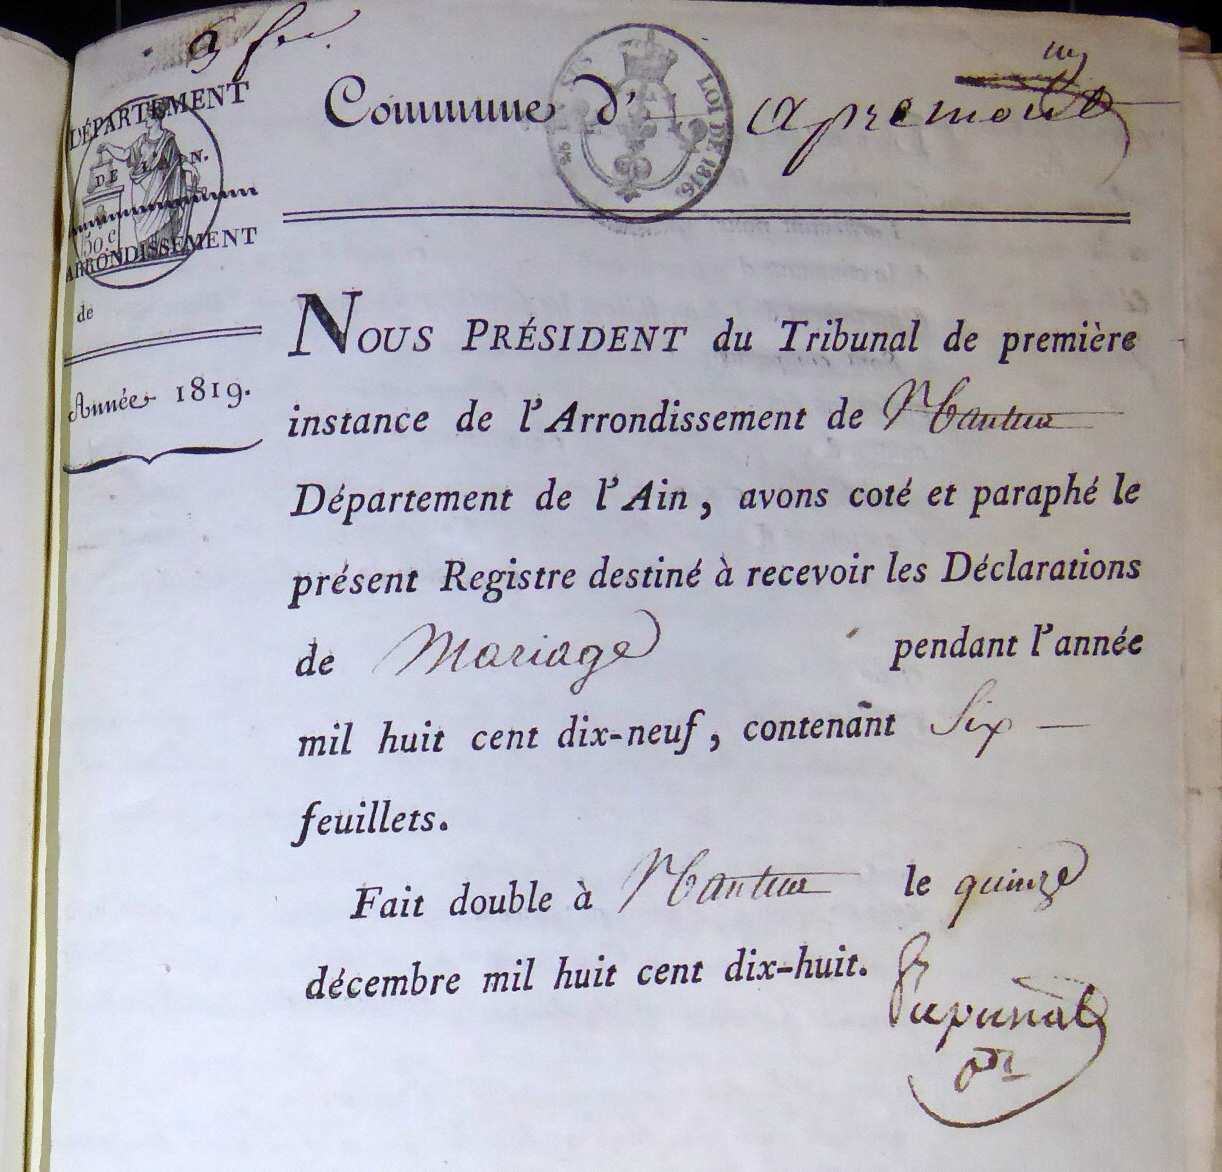 DÉPARTEMENT
DE L'AIN.
50 c
ARRONDISSEMENT
de
Année 1819.
Commune d' apremont
LOI DE 1816.
NOUS PRÉSIDENT du Tribunal de première
instance de l'Arrondissement de Nantua
Département de l'Ain, avons coté et paraphé le
présent Registre destiné à recevoir les Déclarations
de Mariage pendant l'année
mil huit cent dix-neuf, contenant Six
feuillets.
Fait double à Nantua le quinze
décembre mil huit cent dix-huit.